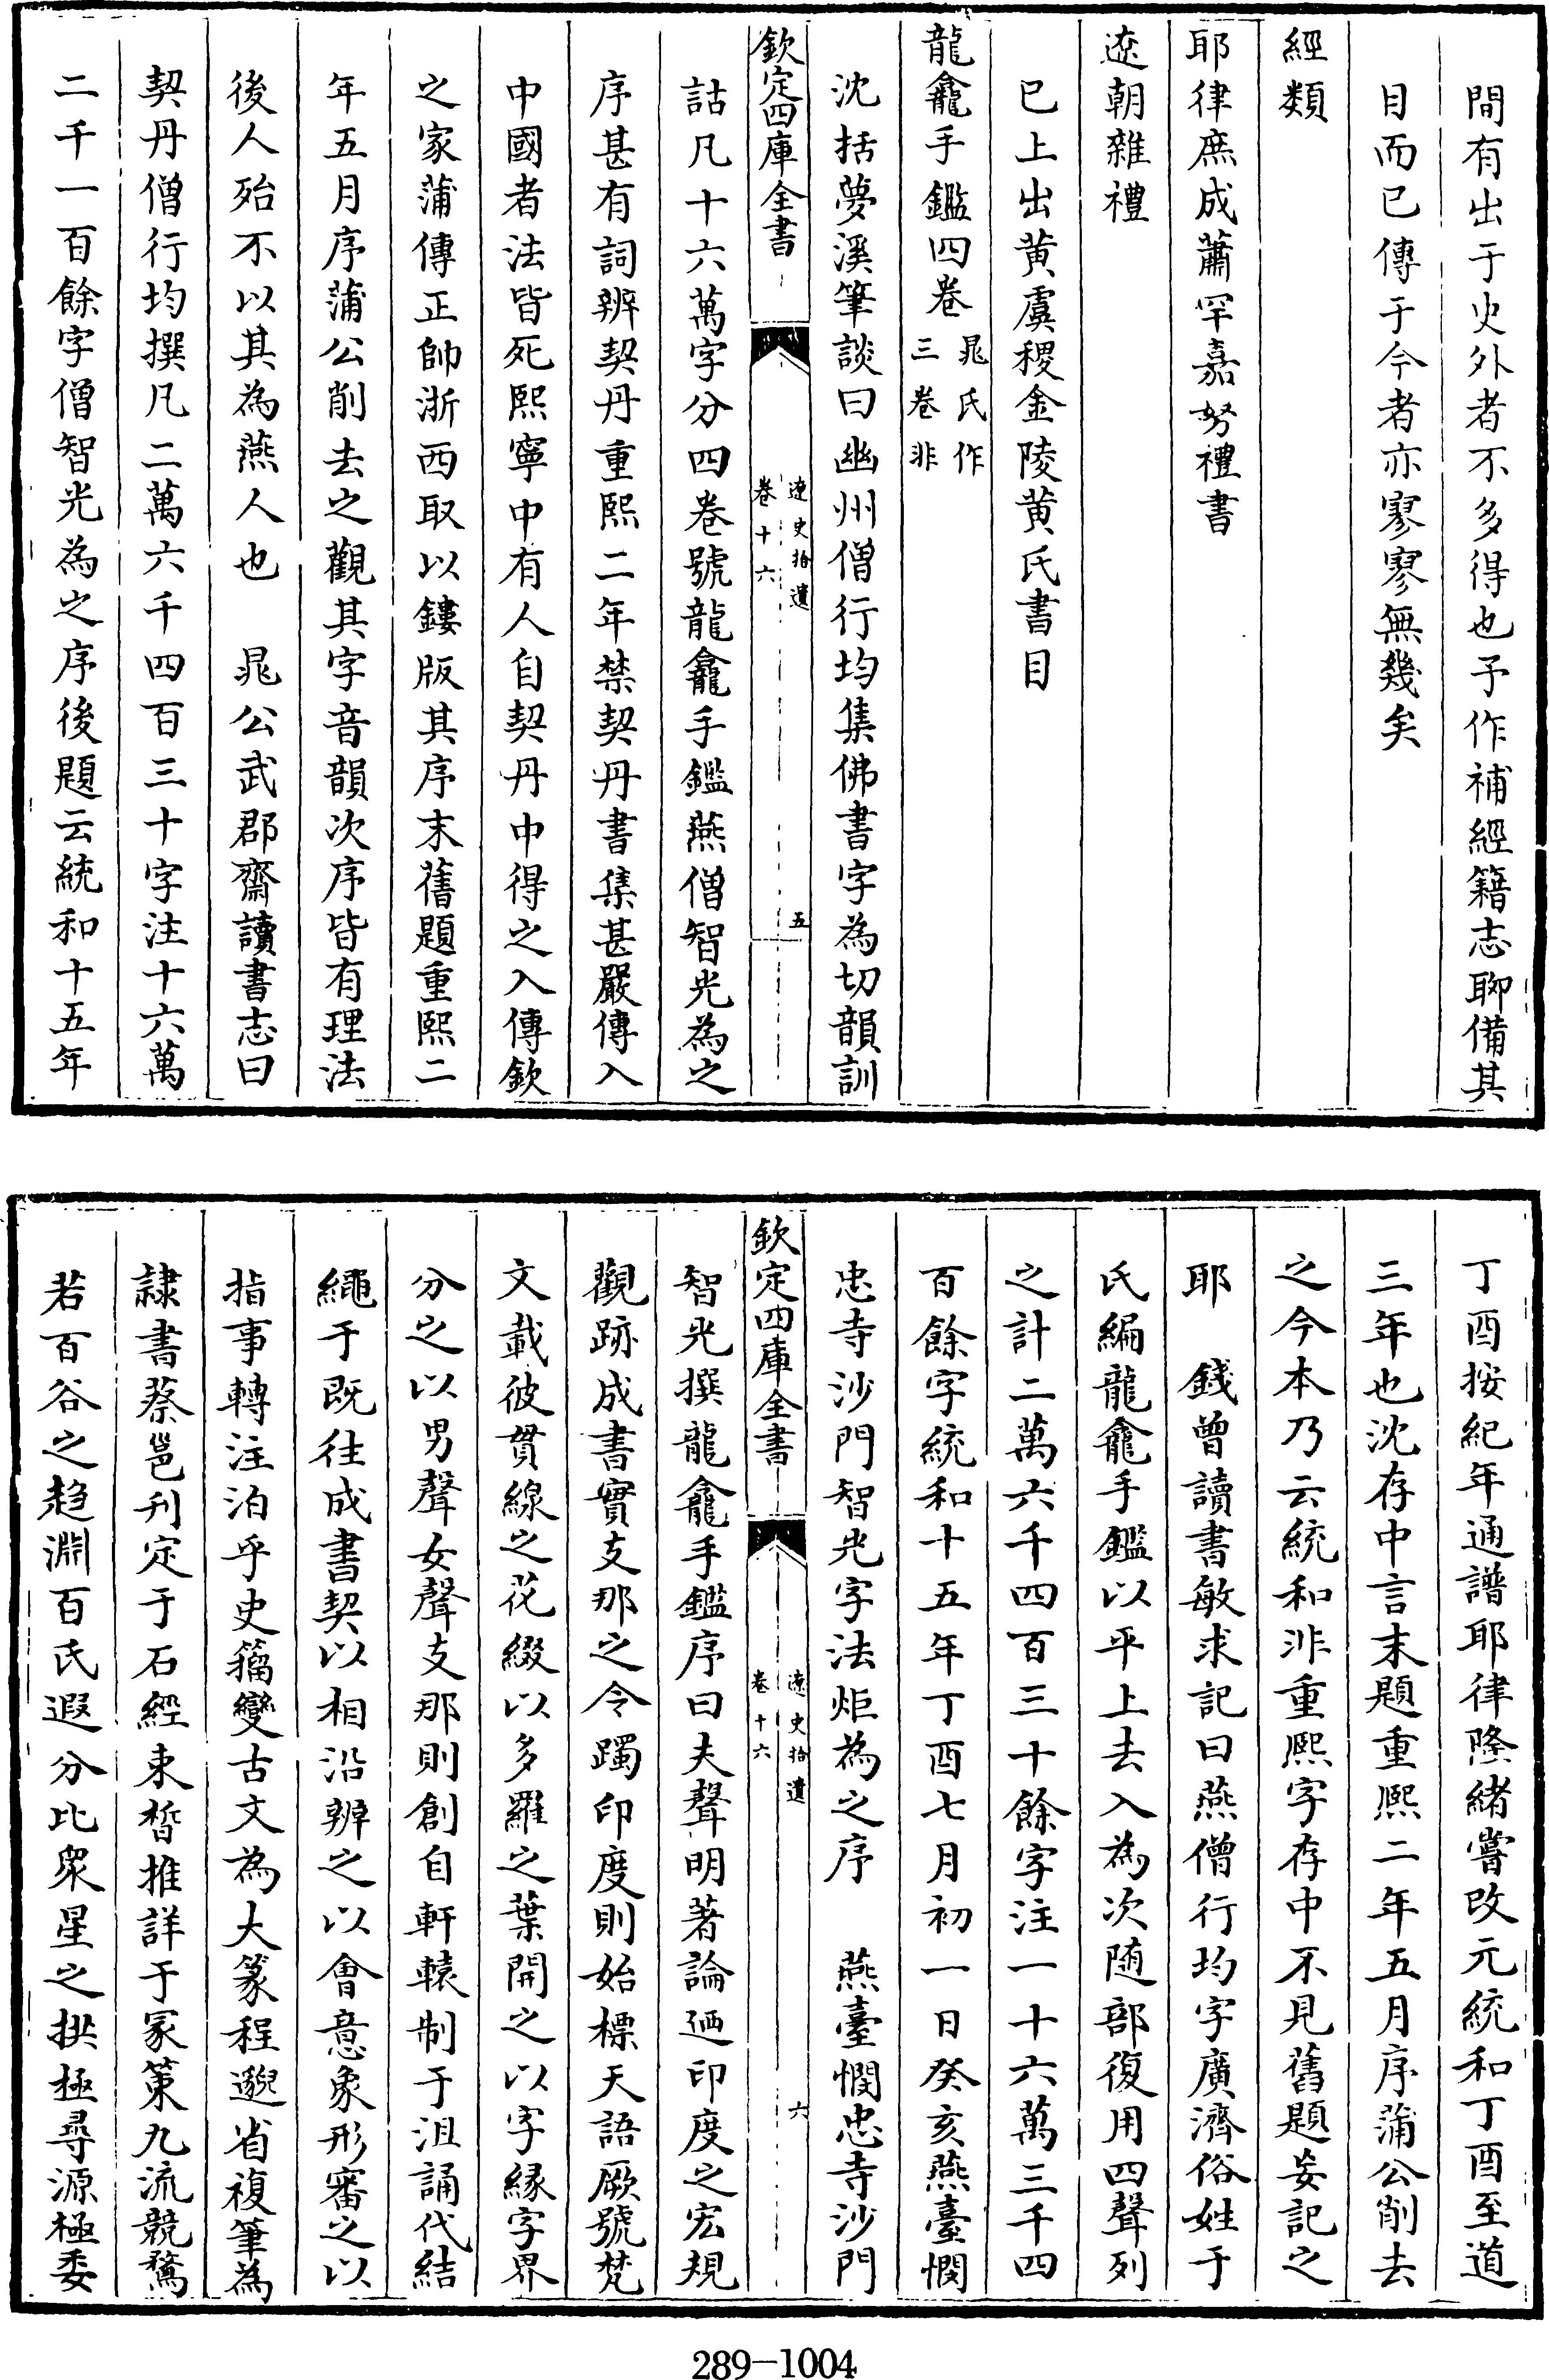 間有出于史外者不多得也予作補經籍志聊備其
目而已傳于今者亦寥寥無幾矣
經類
耶律庶成蕭罕嘉努禮書
遼朝雜禮
已上出黄虞稷金陵黄氏書目
龍龕手鑑四卷晁氏作三卷非
沈括夢溪筆談曰幽州僧行均集佛書字為切韻訓
欽定四庫全書
遼史拾遺
卷十六
五
詁凡十六萬字分四卷號龍龕手鑑燕僧智光為之
序甚有詞辨契丹重熙二年禁契丹書集甚嚴傳入
中國者法皆死熙寧中有人自契丹中得之入傳欽
之家蒲傳正帥浙西取以鏤版其序末舊題重熙二
年五月序蒲公削去之觀其字音韻次序皆有理法
後人殆不以其為燕人也　晁公武郡齋讀書志曰
契丹僧行均撰凡二萬六千四百三十字注十六萬
二千一百餘字僧智光為之序後題云統和十五年
丁酉按紀年通譜耶律隆緒嘗改元統和丁酉至道
三年也沈存中言末題重熙二年五月序蒲公削去
之今本乃云統和非重熙字存中不見舊題妄記之
耶　錢曾讀書敏求記曰燕僧行均字廣濟俗姓于
氏編龍龕手鑑以平上去入為次随部復用四聲列
之計二萬六千四百三十餘字注一十六萬三千四
百餘字統和十五年丁酉七月初一日癸亥燕臺憫
忠寺沙門智光字法炬為之序　燕臺憫忠寺沙門
欽定四庫全書
遼史拾遺
卷十六
六
智光撰龍龕手鑑序曰夫聲明著論迺印度之宏規
觀跡成書實支那之令躅印度則始標天語厥號梵
文載彼貫線之花綴以多羅之葉開之以字緣字界
分之以男聲女聲支那則創自軒轅制于沮誦代結
繩于既往成書契以相沿辨之以會意象形審之以
指事轉注洎乎史籀變古文為大篆程邈省複筆為
隷書蔡邕刋定于石經束晳推詳于冢策九流競騖
若百谷之趋淵百氏遐分比衆星之拱極尋源極委
289-1004